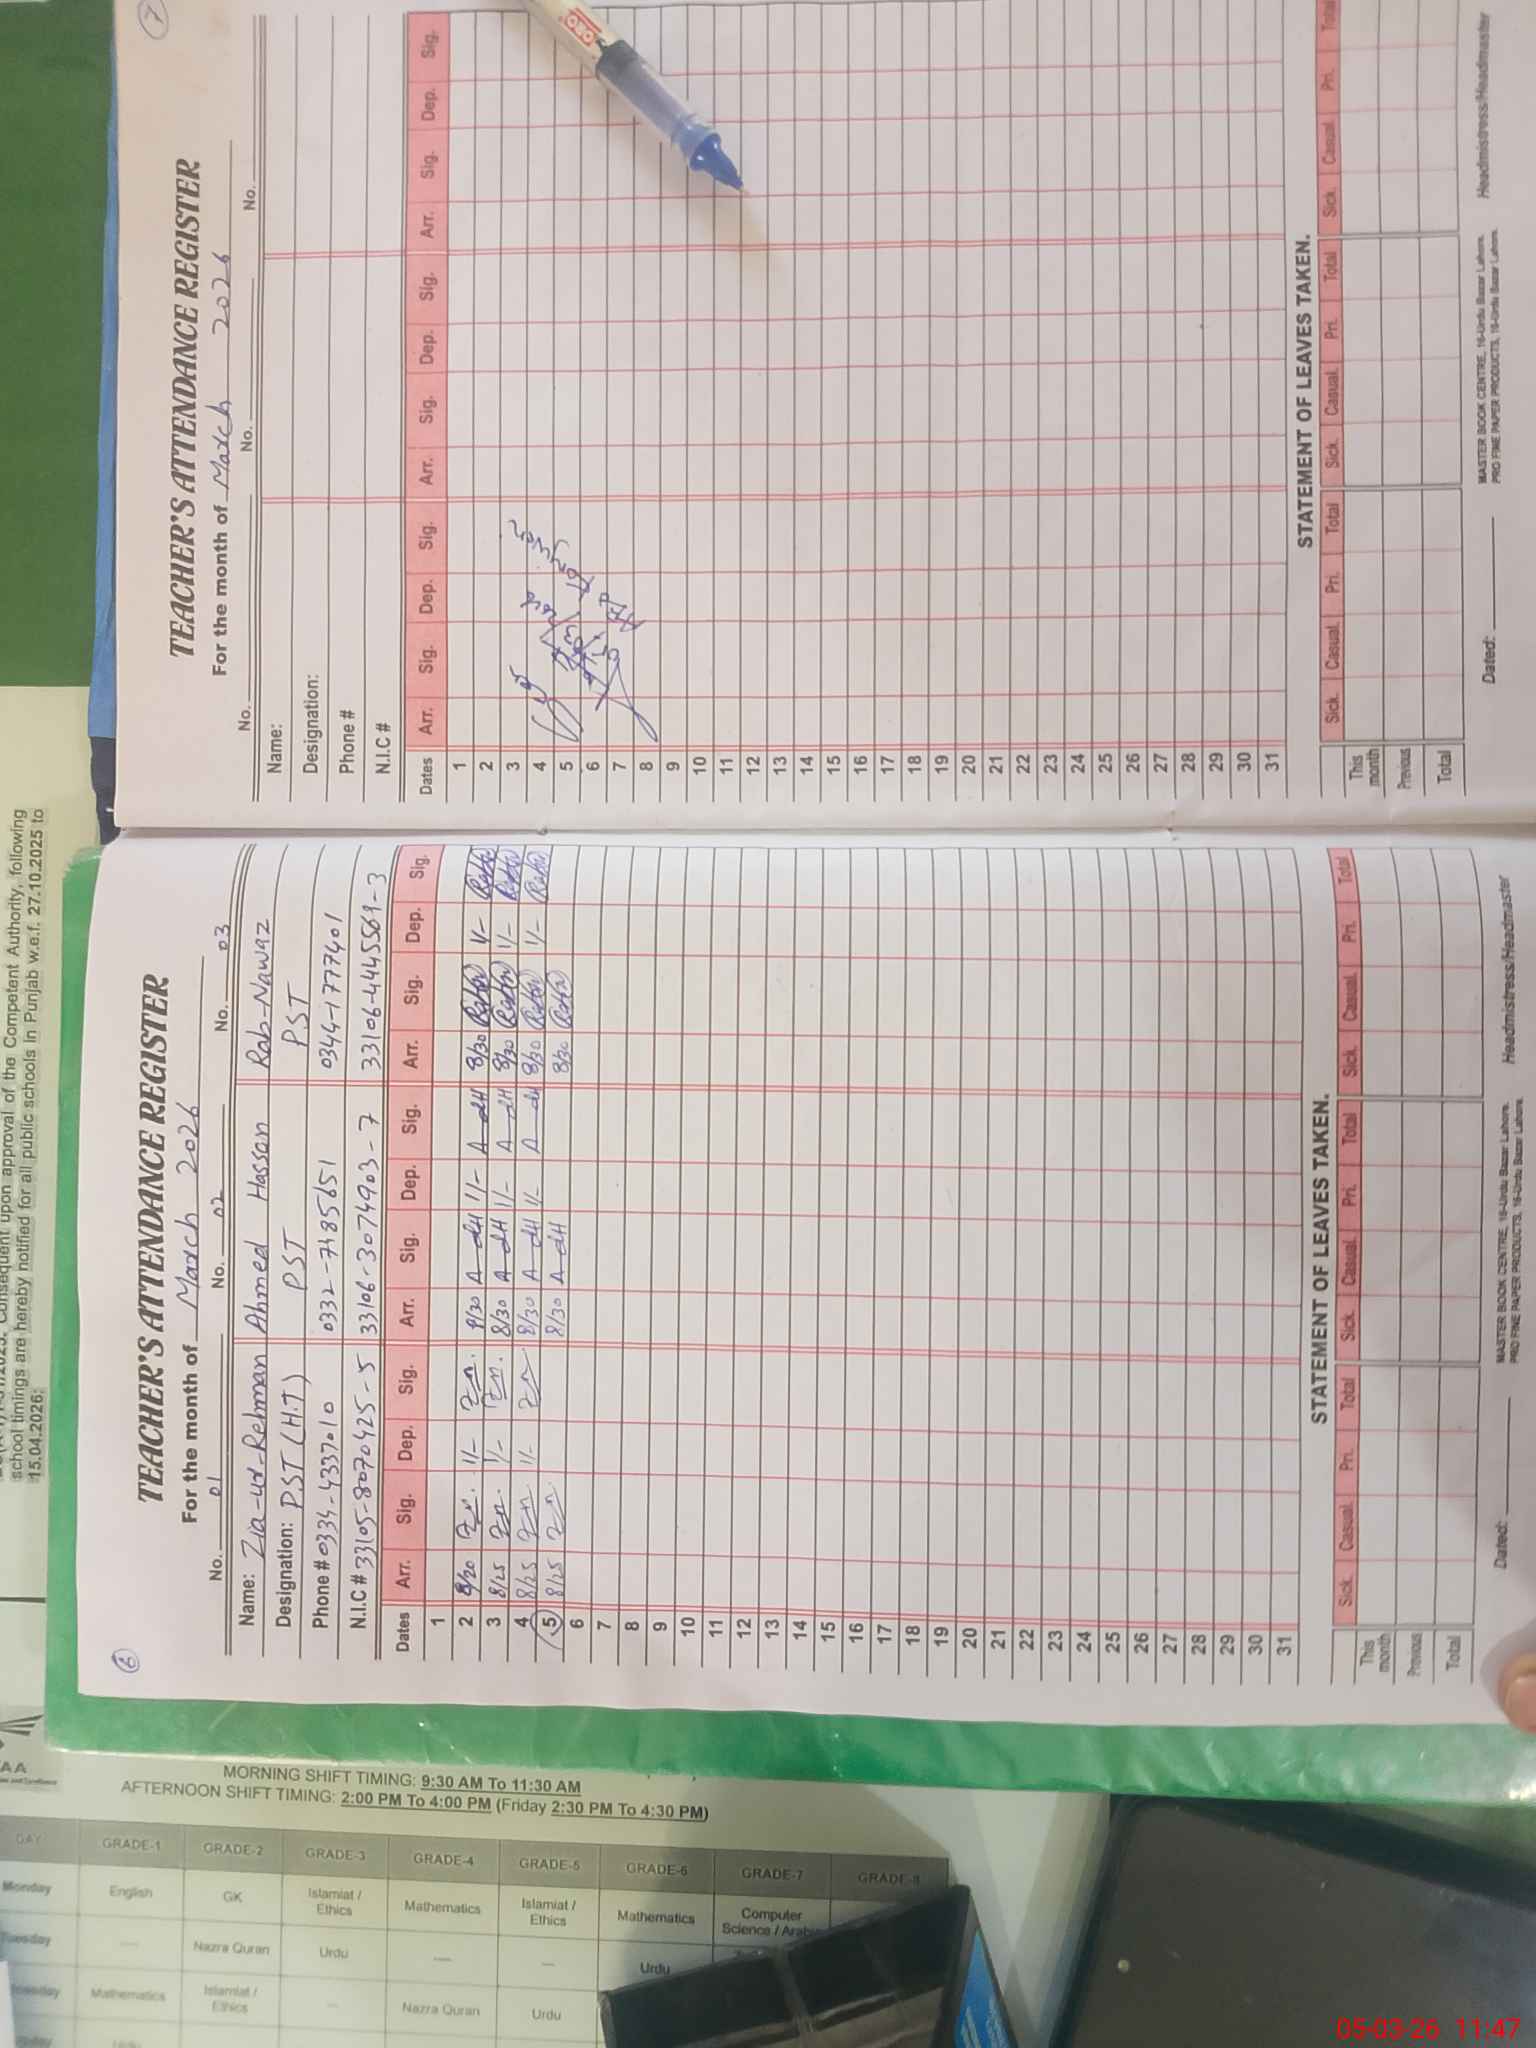 6
TEACHER'S ATTENDANCE REGISTER
For the month of March 2026
No. 01 No. 02 No. 03
Name: Zia-ud-Rehman Ahmed Hassan Rab-Nawaz
Designation: PST (H.T) PST PST
Phone # 0334-4337010 0332-7185651 0344-1777401
N.I.C # 33105-8070425-5 33106-3074903-7 33106-4445569-3
Dates Arr. Sig. Dep. Sig. Arr. Sig. Dep. Sig. Arr. Sig. Dep. Sig.
1
2 8/20 1/- 8/30 1/- 8/30 1/-
3 8/25 1/- 8/30 1/- 8/30 1/-
4 8/25 1/- 8/30 1/- 8/30 1/-
5 8/25 8/30 8/30
6
7
8
9
10
11
12
13
14
15
16
17
18
19
20
21
22
23
24
25
26
27
28
29
30
31
STATEMENT OF LEAVES TAKEN.
Sick. Casual. Pri. Total Sick. Casual. Pri. Total Sick. Casual. Pri. Total
This month
Previous
Total
Dated: Headmistress/Headmaster
MASTER BOOK CENTRE, 16-Urdu Bazar Lahore.
PRO FINE PAPER PRODUCTS, 16-Urdu Bazar Lahore.
7
TEACHER'S ATTENDANCE REGISTER
For the month of March 2026
No. No. No.
Name:
Designation:
Phone #
N.I.C #
Dates Arr. Sig. Dep. Sig. Arr. Sig. Dep. Sig. Arr. Sig. Dep. Sig.
1
2
3
4
5
6
7
8
9
10
11
12
13
14
15
16
17
18
19
20
21
22
23
24
25
26
27
28
29
30
31
STATEMENT OF LEAVES TAKEN.
Sick. Casual. Pri. Total Sick. Casual. Pri. Total Sick. Casual. Pri. Total
This month
Previous
Total
Dated: Headmistress/Headmaster
MASTER BOOK CENTRE, 16-Urdu Bazar Lahore.
PRO FINE PAPER PRODUCTS, 16-Urdu Bazar Lahore.
Consequent upon approval of the Competent Authority, following
school timings are hereby notified for all public schools in Punjab w.e.f. 27.10.2025 to
15.04.2026:
MORNING SHIFT TIMING: 9:30 AM To 11:30 AM
AFTERNOON SHIFT TIMING: 2:00 PM To 4:00 PM (Friday 2:30 PM To 4:30 PM)
DAY GRADE-1 GRADE-2 GRADE-3 GRADE-4 GRADE-5 GRADE-6 GRADE-7 GRADE-8
Monday English GK Islamiat / Ethics Mathematics Islamiat / Ethics Mathematics Computer Science / Arabic
Tuesday --- Nazra Quran Urdu --- --- Urdu
Mathematics Islamiat / Ethics --- Nazra Quran Urdu
05-03-26 11:47